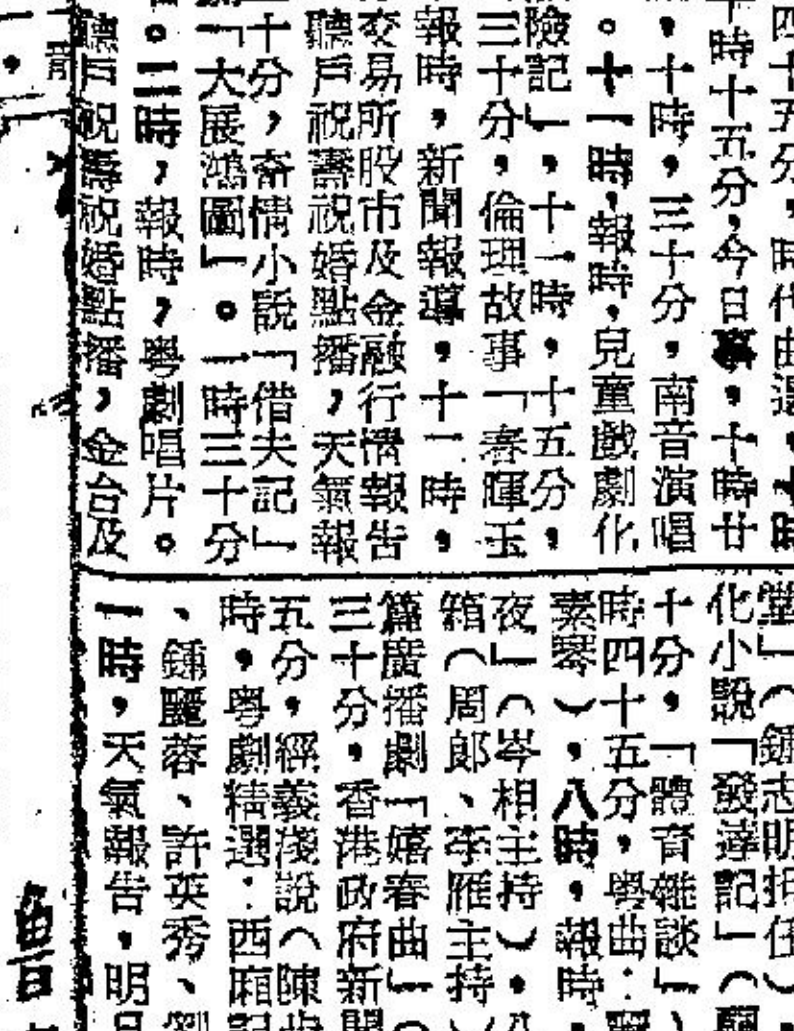 四十五分,時代曲選,十時
十時十五分,今日事,十時廿
,十時,三十分,南音演唱
。十一時,報時,兒童戲劇化
險記」,十一時,十五分,
三十分,倫理故事「春暉玉
報時,新聞報導,十二時,
交易所股市及金融行情報告
聽戶祝壽祝婚點播,天氣報
十分,奇情小說「借夫記」
「大展鴻圖」。一時三十分
。二時,報時,粵劇唱片。
聽戶祝壽祝婚點播,金台及
堂」(鍾志明担任)
化小說「發達記」(
十分,「體育雜談」)
時四十五分,粵曲:
素琴),八時,報時,
夜」(岑相主持)。八
箱(周郎、李雁主持)
篇廣播劇「嬉春曲」(
三十分,香港政府新聞
五分,經義淺說(陳
時,粵劇精選:西廂記
、鍾麗蓉、許英秀、劉
一時,天氣報告,明日